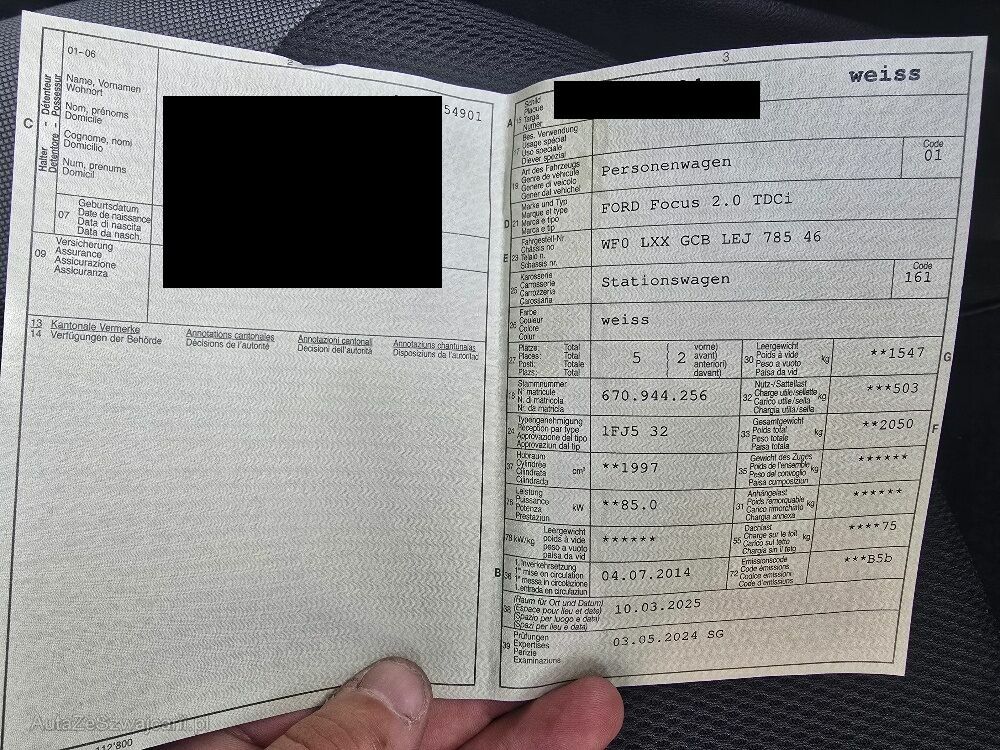 01-06
2
Name, Vornamen
Wohnort
Nom, prénoms
Domicile
Cognome, nomi
Domicilio
Num, prenums
Domicil
C
Halter - Détenteur
Detentore - Possessur
54901
07
Geburtsdatum
Date de naissance
Data di nascita
Data da nasch.
09
Versicherung
Assurance
Assicurazione
Assicuranza
13
14
Kantonale Vermerke
Verfügungen der Behörde
Annotations cantonales
Décisions de l'autorité
Annotazioni cantonali
Decisioni dell'autorità
Annotaziuns chantunalas
Disposiziuns da l'autoritad
112'800
AutaZeSzwajcarii.pl
3
weiss
A
15
Schild
Plaque
Targa
Numer
17
Bes. Verwendung
Usage spécial
Uso speciale
Diever spezial
19
Art des Fahrzeugs
Genre de véhicule
Genere di veicolo
Gener dal vehichel
Personenwagen
Code
01
D
21
Marke und Typ
Marque et type
Marca e tipo
Marca e tip
FORD Focus 2.0 TDCi
E
23
Fahrgestell-Nr
Châssis no
Telaio n.
Schassis nr.
WF0 LXX GCB LEJ 785 46
25
Karosserie
Carrosserie
Carrozzeria
Carossaria
Stationswagen
Code
161
26
Farbe
Couleur
Colore
Colur
weiss
27
Plätze: Total
Places: Total
Posti: Totale
Plazs: Total
5
2
vorne)
avant)
anteriori)
davant)
30
Leergewicht
Poids à vide
Peso a vuoto
Paisa da vid
kg
**1547
G
18
Stammnummer
N° matricule
N. di matricola
Nr. da matricla
670.944.256
32
Nutz-/Sattellast
Charge utile/sellette
Carico utile/sella
Chargia utila/sella
kg
***503
24
Typengenehmigung
Réception par type
Approvazione del tipo
Approvaziun dal tip
1FJ5 32
33
Gesamtgewicht
Poids total
Peso totale
Paisa totala
kg
**2050
F
37
Hubraum
Cylindrée
Cilindrata
Cilindrada
cm³
**1997
35
Gewicht des Zuges
Poids de l'ensemble
Peso del convoglio
Paisa cumposiziun
kg
******
76
Leistung
Puissance
Potenza
Prestaziun
kW
**85.0
31
Anhängelast
Poids remorquable
Carico rimorchiato
Chargia annexa
kg
******
78
kW/kg
Leergewicht
poids à vide
peso a vuoto
paisa da vid
******
55
Dachlast
Charge sur le toit
Carico sul tetto
Chargia sin il tetg
kg
****75
B
36
1. Inverkehrsetzung
1re mise en circulation
1a messa in circolazione
1. entrada en circulaziun
04.07.2014
72
Emissionscode
Code émissions
Codice emissioni
Code d'emissiuns
***B5b
38
(Raum für Ort und Datum)
(Espace pour lieu et date)
(Spazio per luogo e data)
(Spazi per lieu e data)
10.03.2025
39
Prüfungen
Expertises
Perizie
Examinaziuns
03.05.2024 SG